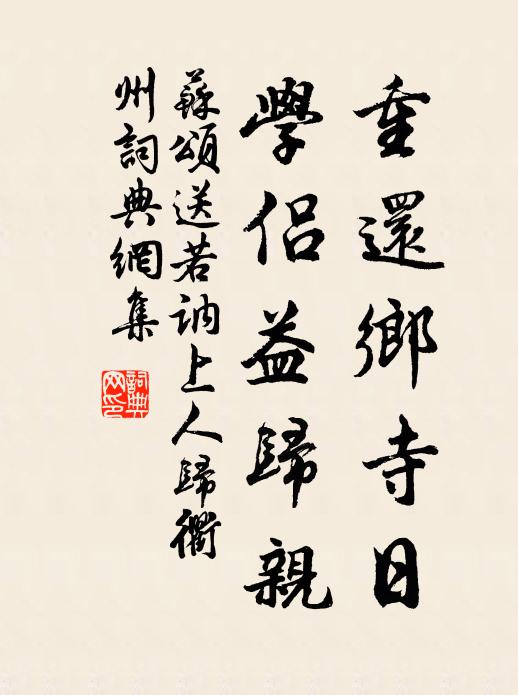 重還鄉寺日
學侶益歸親
蘇頌送若訥上人歸衢
州詞典網集
詞典
网印